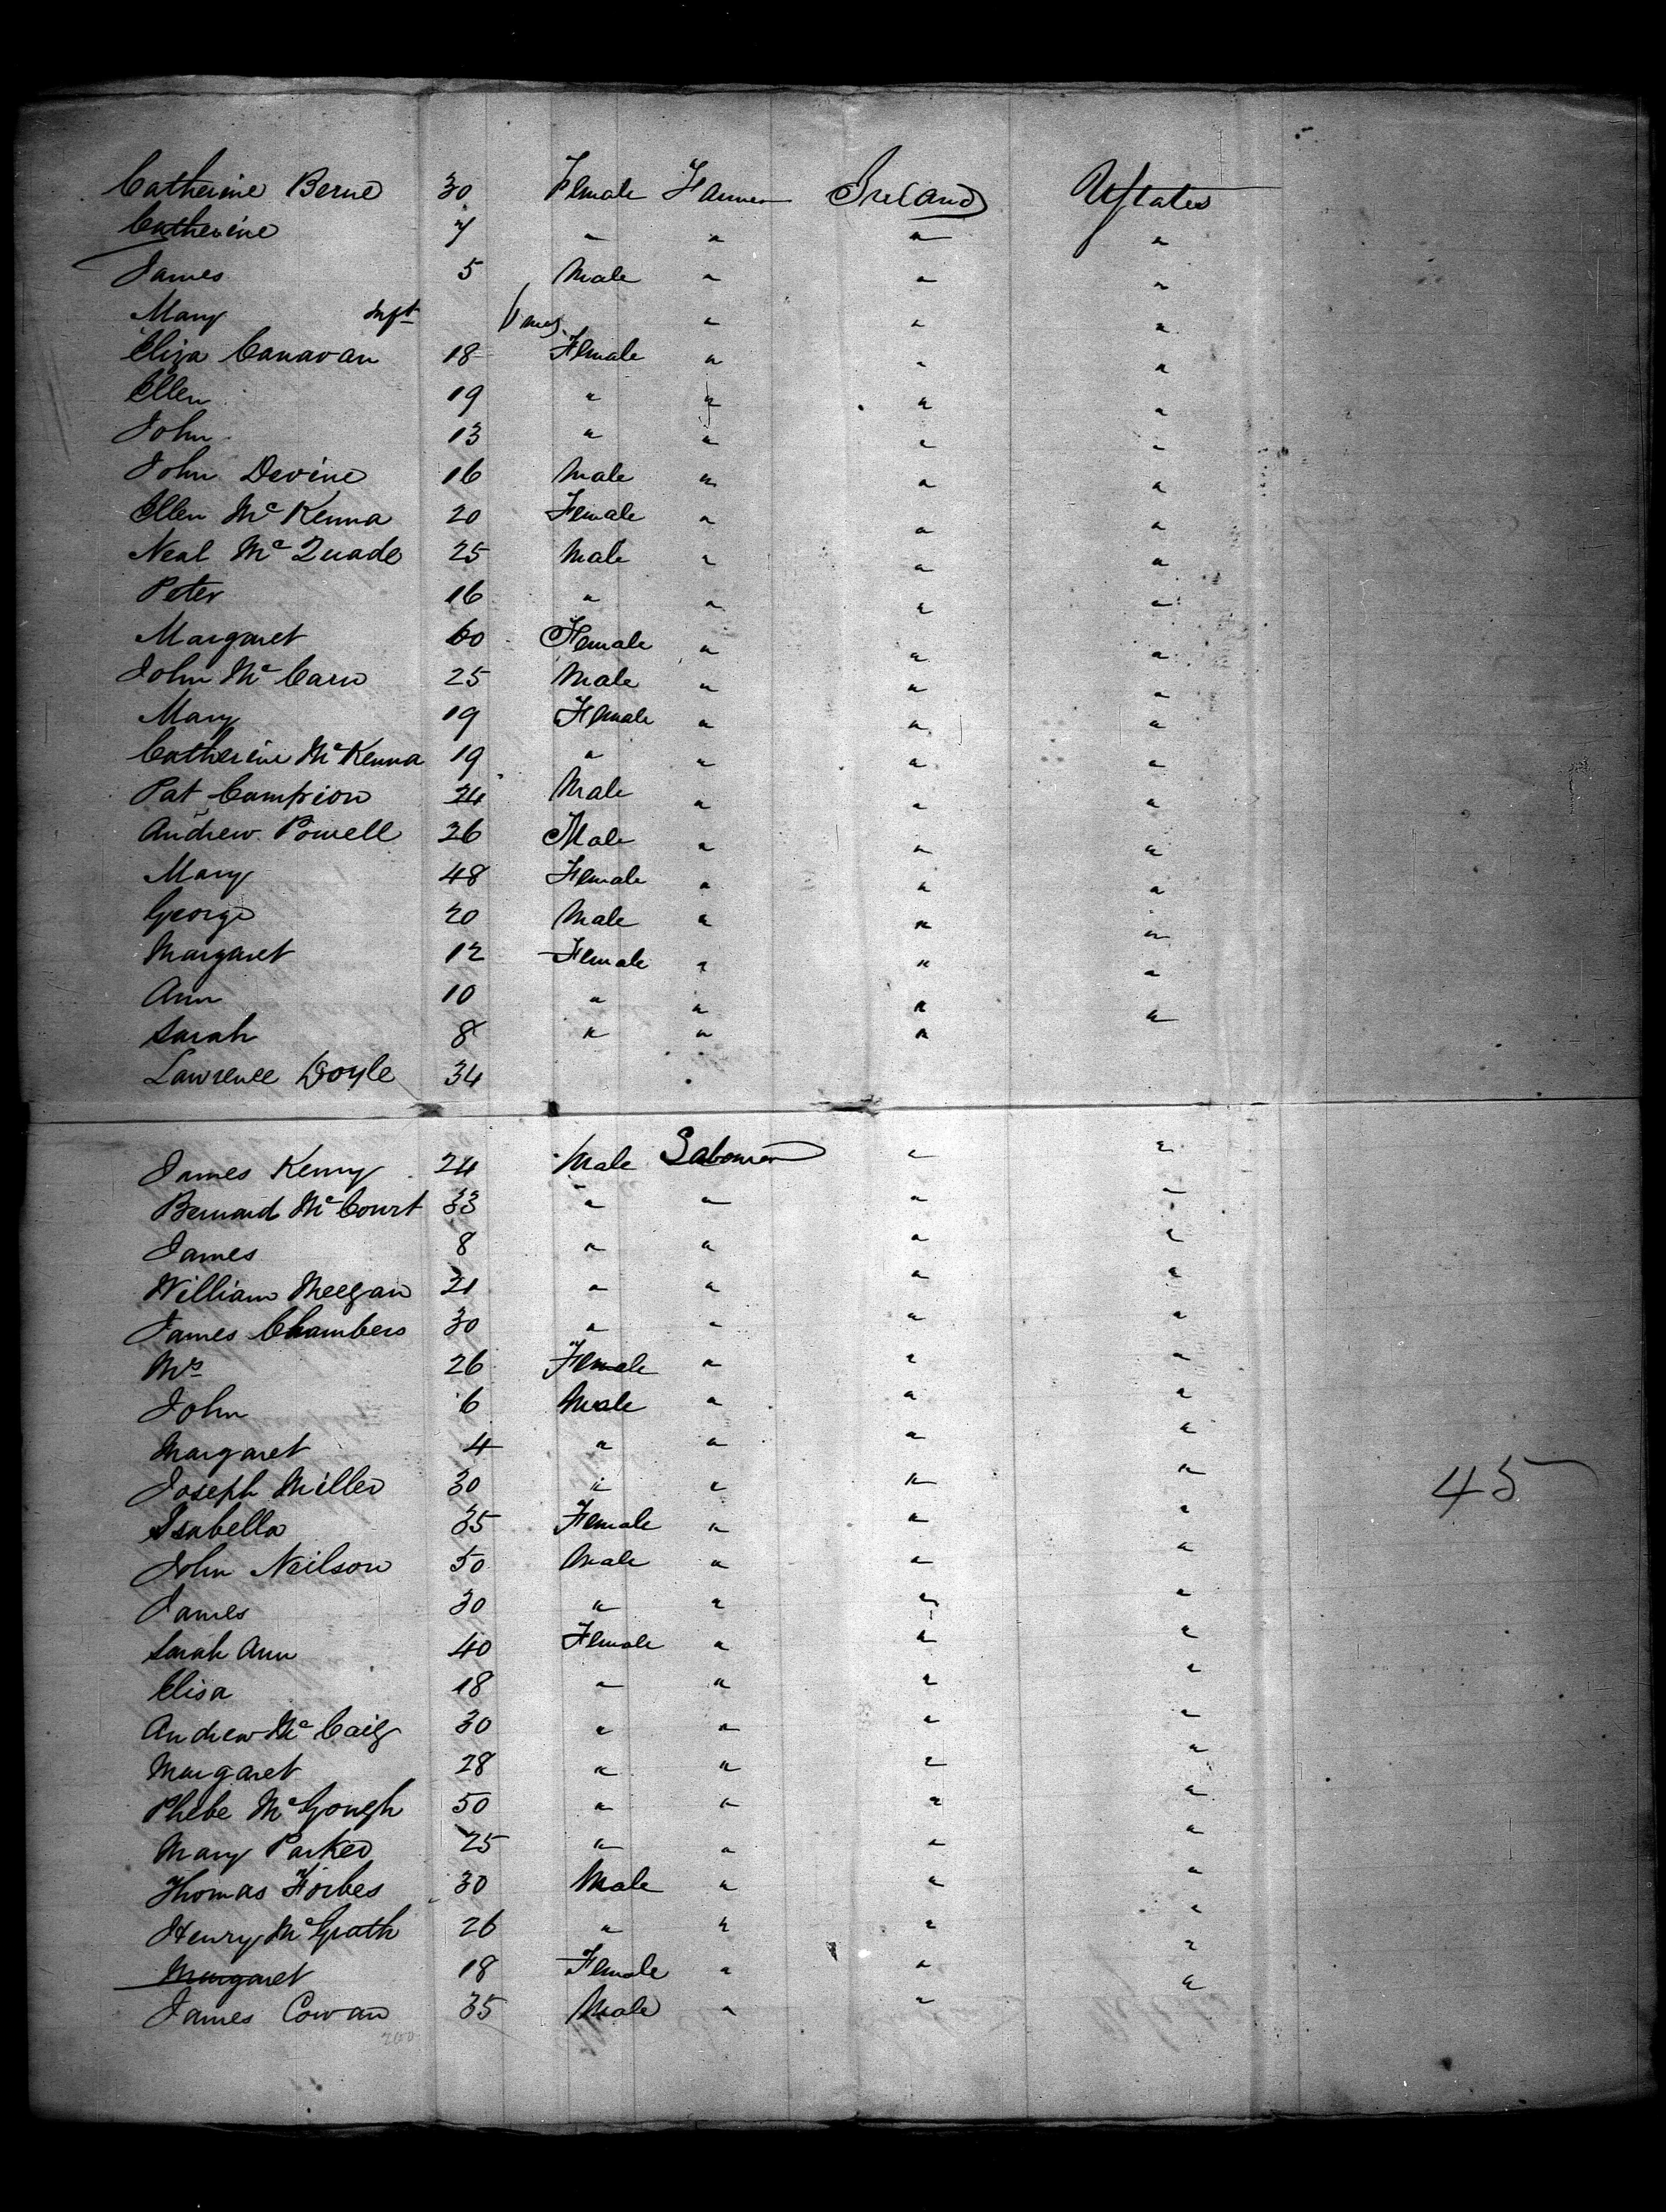 Catherine Berne 30 Female Farmer Ireland UStates
Catherine 7 " " " "
James 5 Male " " "
Mary Inft mos " " "
Eliza Canavan 18 Female " " "
Ellen 19 " " " "
John 13 " " " "
John Devine 16 Male " " "
Ellen McKenna 20 Female " " "
Neal McQuade 25 Male " " "
Peter 16 " " " "
Margaret 60 Female " " "
John McCarn 25 Male " " "
Mary 19 Female " " "
Catherine McKenna 19 " " " "
Pat Campion 24 Male " " "
Andrew Powell 26 Male " " "
Mary 48 Female " " "
George 20 Male " " "
Margaret 12 Female " " "
Ann 10 " " " "
Sarah 8 " " "
Lawrence Doyle 34
James Kenny 24 Male Labourer " "
Bernard McCourt 33 " " " "
James 8 " " " "
William Meegan 21 " " " "
James Chambers 30 " " " "
Mrs 26 Female " " "
John 6 Male " " "
Margaret 4 " " " "
Joseph Miller 30 " " " "
45
Isabella 35 Female " " "
John Neilson 50 Male " " "
James 30 " " " "
Sarah Ann 40 Female " " "
Elisa 18 " " " "
Andrew McCaig 30 " " " "
Margaret 28 " " " "
Phebe McGough 50 " " " "
Mary Parker 25 " " " "
Thomas Forbes 30 Male " " "
Henry McGrath 26 " " " "
Margaret 18 Female " " "
James Cowan 35 Male " "
200